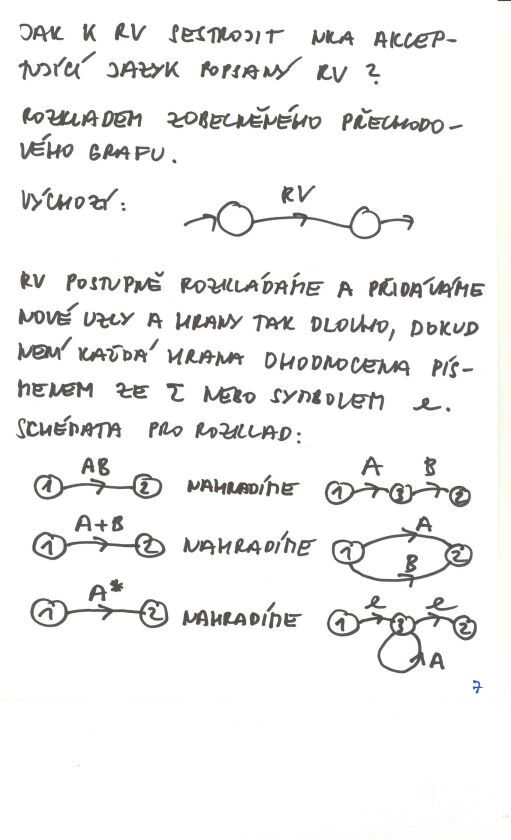 JAK K RV SESTROJIT NKA AKCEP-
TUJÍCÍ JAZYK POPSANÝ RV ?
ROZKLADEM ZOBECNĚNÉHO PŘECHODO-
VÉHO GRAFU.
VÝCHOZÍ:
RV
RV POSTUPNĚ ROZKLÁDÁME A PŘIDÁVÁME
NOVÉ UZLY A HRANY TAK DLOUHO, DOKUD
NENÍ KAŽDÁ HRANA OHODNOCENA PÍS-
MENEM ZE Σ NEBO SYMBOLEM e.
SCHÉMATA PRO ROZKLAD:
1 AB 2 NAHRADÍME 1 A 3 B 2
1 A+B 2 NAHRADÍME 1 A B 2
1 A* 2 NAHRADÍME 1 e 3 e 2 A
7